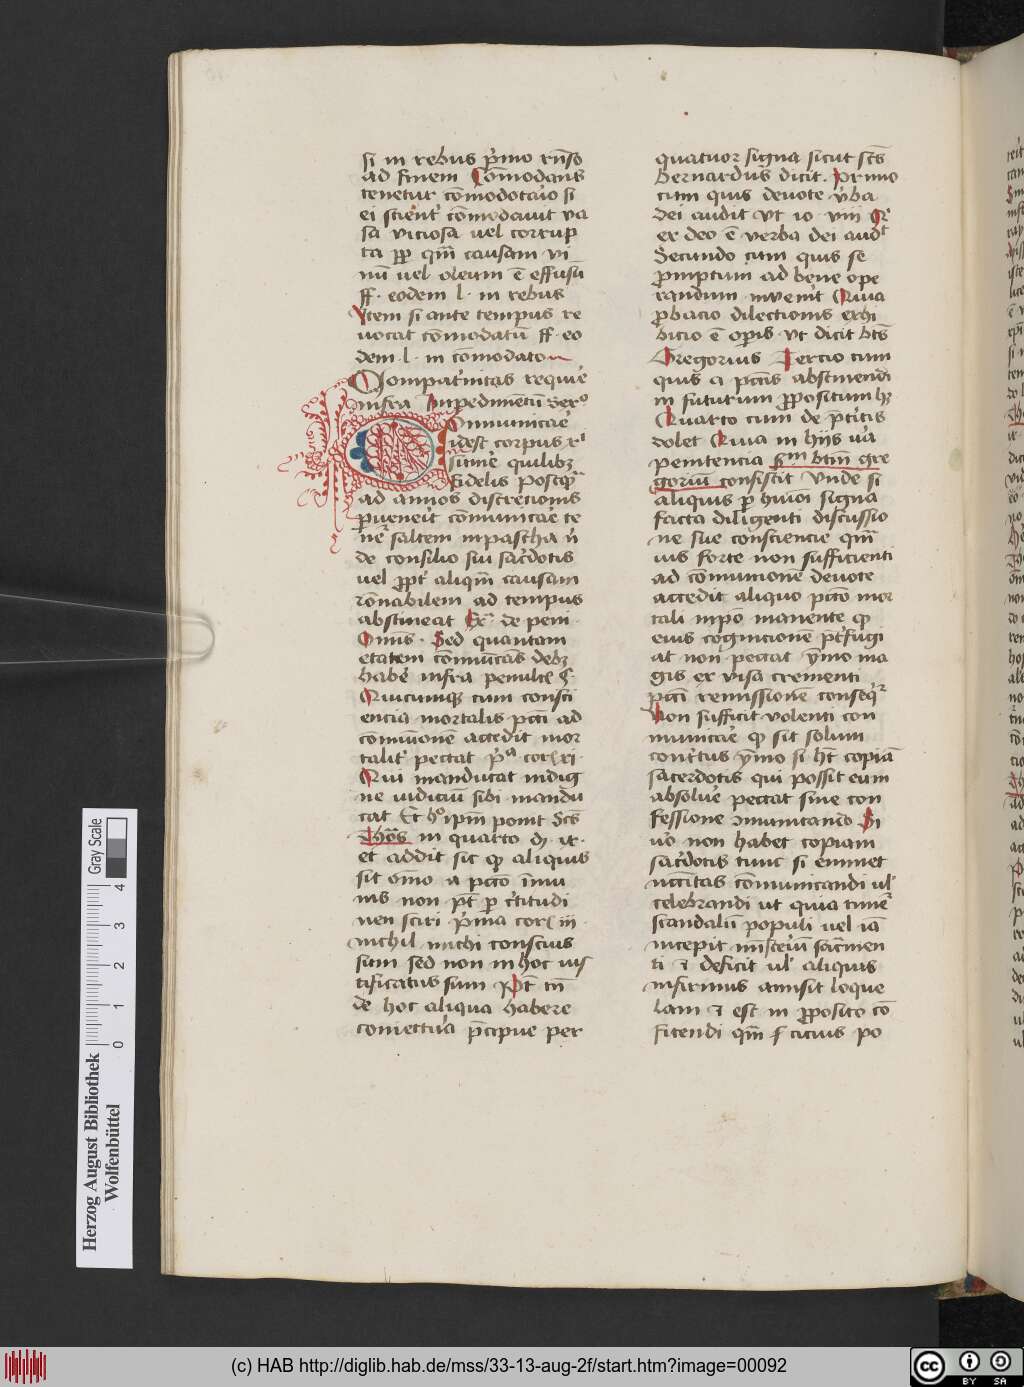 si in rebus p̄mo rn̄so
ad finem Cōmodans
tenetur cōmodotaꝛio si
ei scient᷑ cōmodauit va
sa viciosa vel corrup
ta ꝓp qm̄ causam vi
nū vel oleum ē effusū
ff. eodem l. in rebus
Item si ante tempus re
uocat cōmodatū ff. eo
dem .l. in cōmodato
Compat᷑nitas require
infra Inpedimētū
Ommunicaꝛe
idest corpus xͥ
sume quilibꝫ
fidelis postqꝫ
ad annos discrecionis
ꝑueneꝛit cōmunicaꝛe te
net᷑ saltem in pascha n̄
de consilio sui sac᷑dotis
vel ꝓpt᷑ aliqm̄ causam
rōnabilem ad tempus
abstineat Exͣ de peni
Omīs. Sed quantam
etatem cōmūicās debꝫ
habeꝛe infra penultͥ §
Quicumqꝫ cum consci
encia mortalis pctī ad
cōmūionē accedit mor
talit᷑ peccat pͣ coꝝ xi
Qui manducat indig
ne iudiciū sibi mandu
cat Et hͦ ipm̄ ponit Scs̄
Thōs in quarto di xi
et addit sic qꝫ aliquis
sit oīno a pctō īmu
nis non pōt ꝑ c᷑titudi
nem sciri p̄ma coꝝ iiii
nichil michi conscius
sum sed non in hoc ius
tificatus sum Pōt tn̄
de hoc aliqua habere
coniectuꝛa p̄cipue per
quatuor signa sicut scs̄
Bernardus dicit. Primo
cum quis deuote v᷑ba
dei audit vt io viii Qͥ
ex deo ē verba dei audͭ
Secundo cum quis se
promptum ad bene ope
randum inuenit Quia
ꝓbacio dilectionis exhi
bicio ē opis vt dicit bt̄s
Gregorius Tercio cum
quis a pctīs abstinendi
in futurum ꝓpositum hꝫ
Quarto cum de p̄t᷑itis
dolet Quia in hijs v᷑a
penitencia scdm btm̄ gre
goriū consistit Vnde si
aliquis ꝑ hui⁹mōi signa
facta diligenti discussio
ne sue consciencie qm̄
uis forte non sufficienti
ad cōmunionē deuote
accedit aliquo pctō mor
tali in ip̄o manente qꝫ
eius cognicionē p̄t᷑fugi
at non peccat ymo ma
gis ex visa crementi
pctī remissionē conseqt᷑
Non sufficit volenti con
municaꝛe qꝫ sit solum
contrͥtus ymo si ht̄ copiā
sacerdotis qui possit eum
absolue᷑ peccat sine con
fessione ɔmunicando Si
vͦo non habet copiam
sac᷑dotis tunc si eminet
nccītas cōmunicandi vl᷑
celebrandi vt quia time᷑
scandalū populi vel iā
incepit misteꝛiū sac᷑men
ti ⁊ deficit vl᷑ aliquis
infirmus amisit loque
lam ⁊ est in ꝓposito cō
fitendi qm̄ s̄ cicius po
Herzog August Bibliothek
Wolfenbüttel
Gray Scale
0 1 2 3 4
(c) HAB http://diglib.hab.de/mss/33-13-aug-2f/start.htm?image=00092
cc BY SA